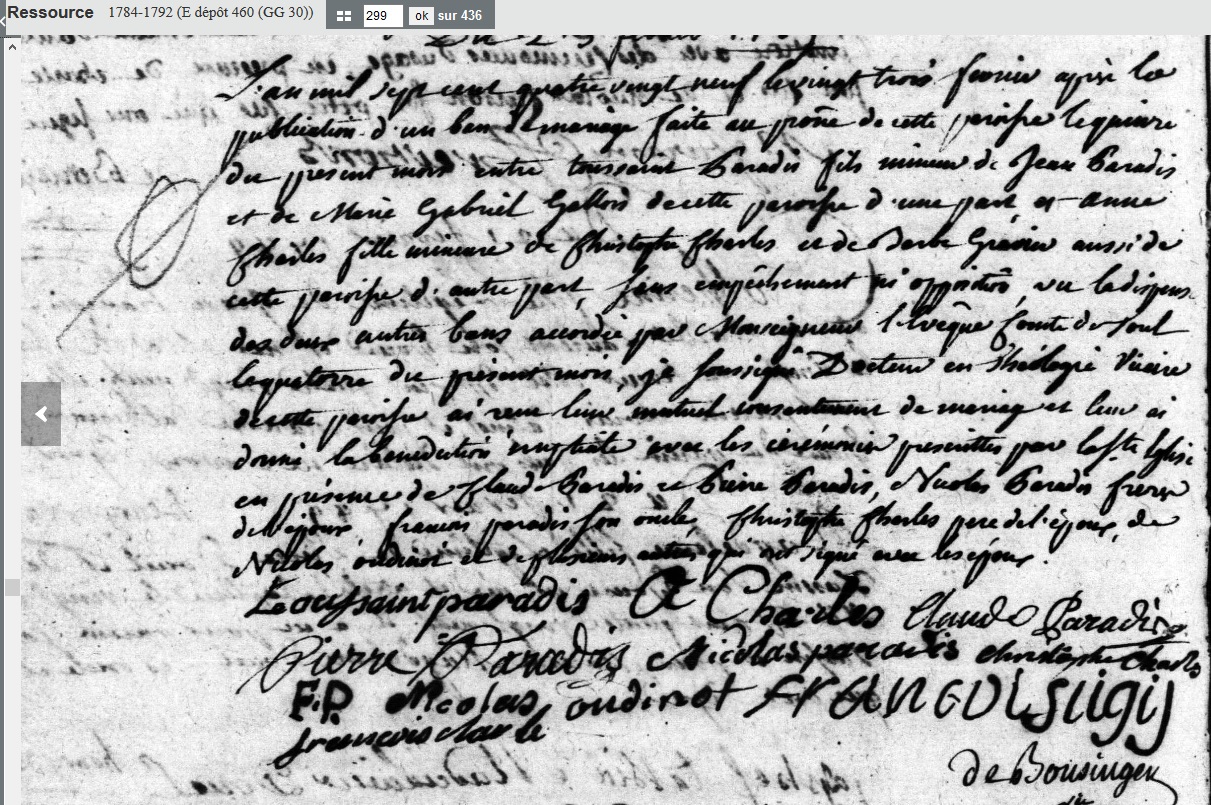 Ressource 1784-1792 (E dépôt 460 (GG 30)) 299 ok sur 436
L'an mil sept cent quatre vingt neuf le vingt trois fevrier après la
publication d'un ban de mariage faite au prône de cette paroisse le quinze
du present mois entre toussaint Paradis fils mineur de Jean Paradis
et de Marie Gabriel Gallois de cette paroisse d'une part, et anne
Charles fille mineure de Christophe Charles et de Barbe aussi de
cette paroisse d'autre part, sans empêchement ni opposition, vu la dispense
des deux autres bans accordée par Monseigneur l'evêque Comte de Toul
le quatorze du présent mois, je soussigné Docteur en Théologie Vicaire
de cette paroisse ai reçu leur mutuel consentement de mariage et leur ai
donné la bénédiction nuptiale avec les cérémonies prescrittes par la Ste Eglise
en présence de Claude Paradis et Pierre Paradis, Nicolas Paradis freres
de l'époux, francois paradis son oncle, Christophe Charles pere de l'épouse, de
Nicolas oudinot et de plusieurs autres qui ont signé avec les époux.
Toussaint paradis A Charles Claude Paradis
Pierre Paradis Nicolas paradis christophe Charles
F.P. Nicolas oudinot FRANCOIS
françois charle
de Bousinger